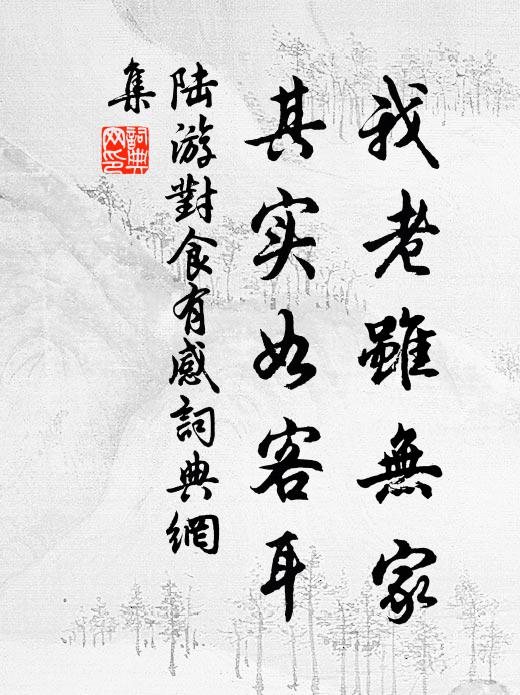 我老雖無家
其实如客耳
陆游對食有感詞典網
集
詞典
网印